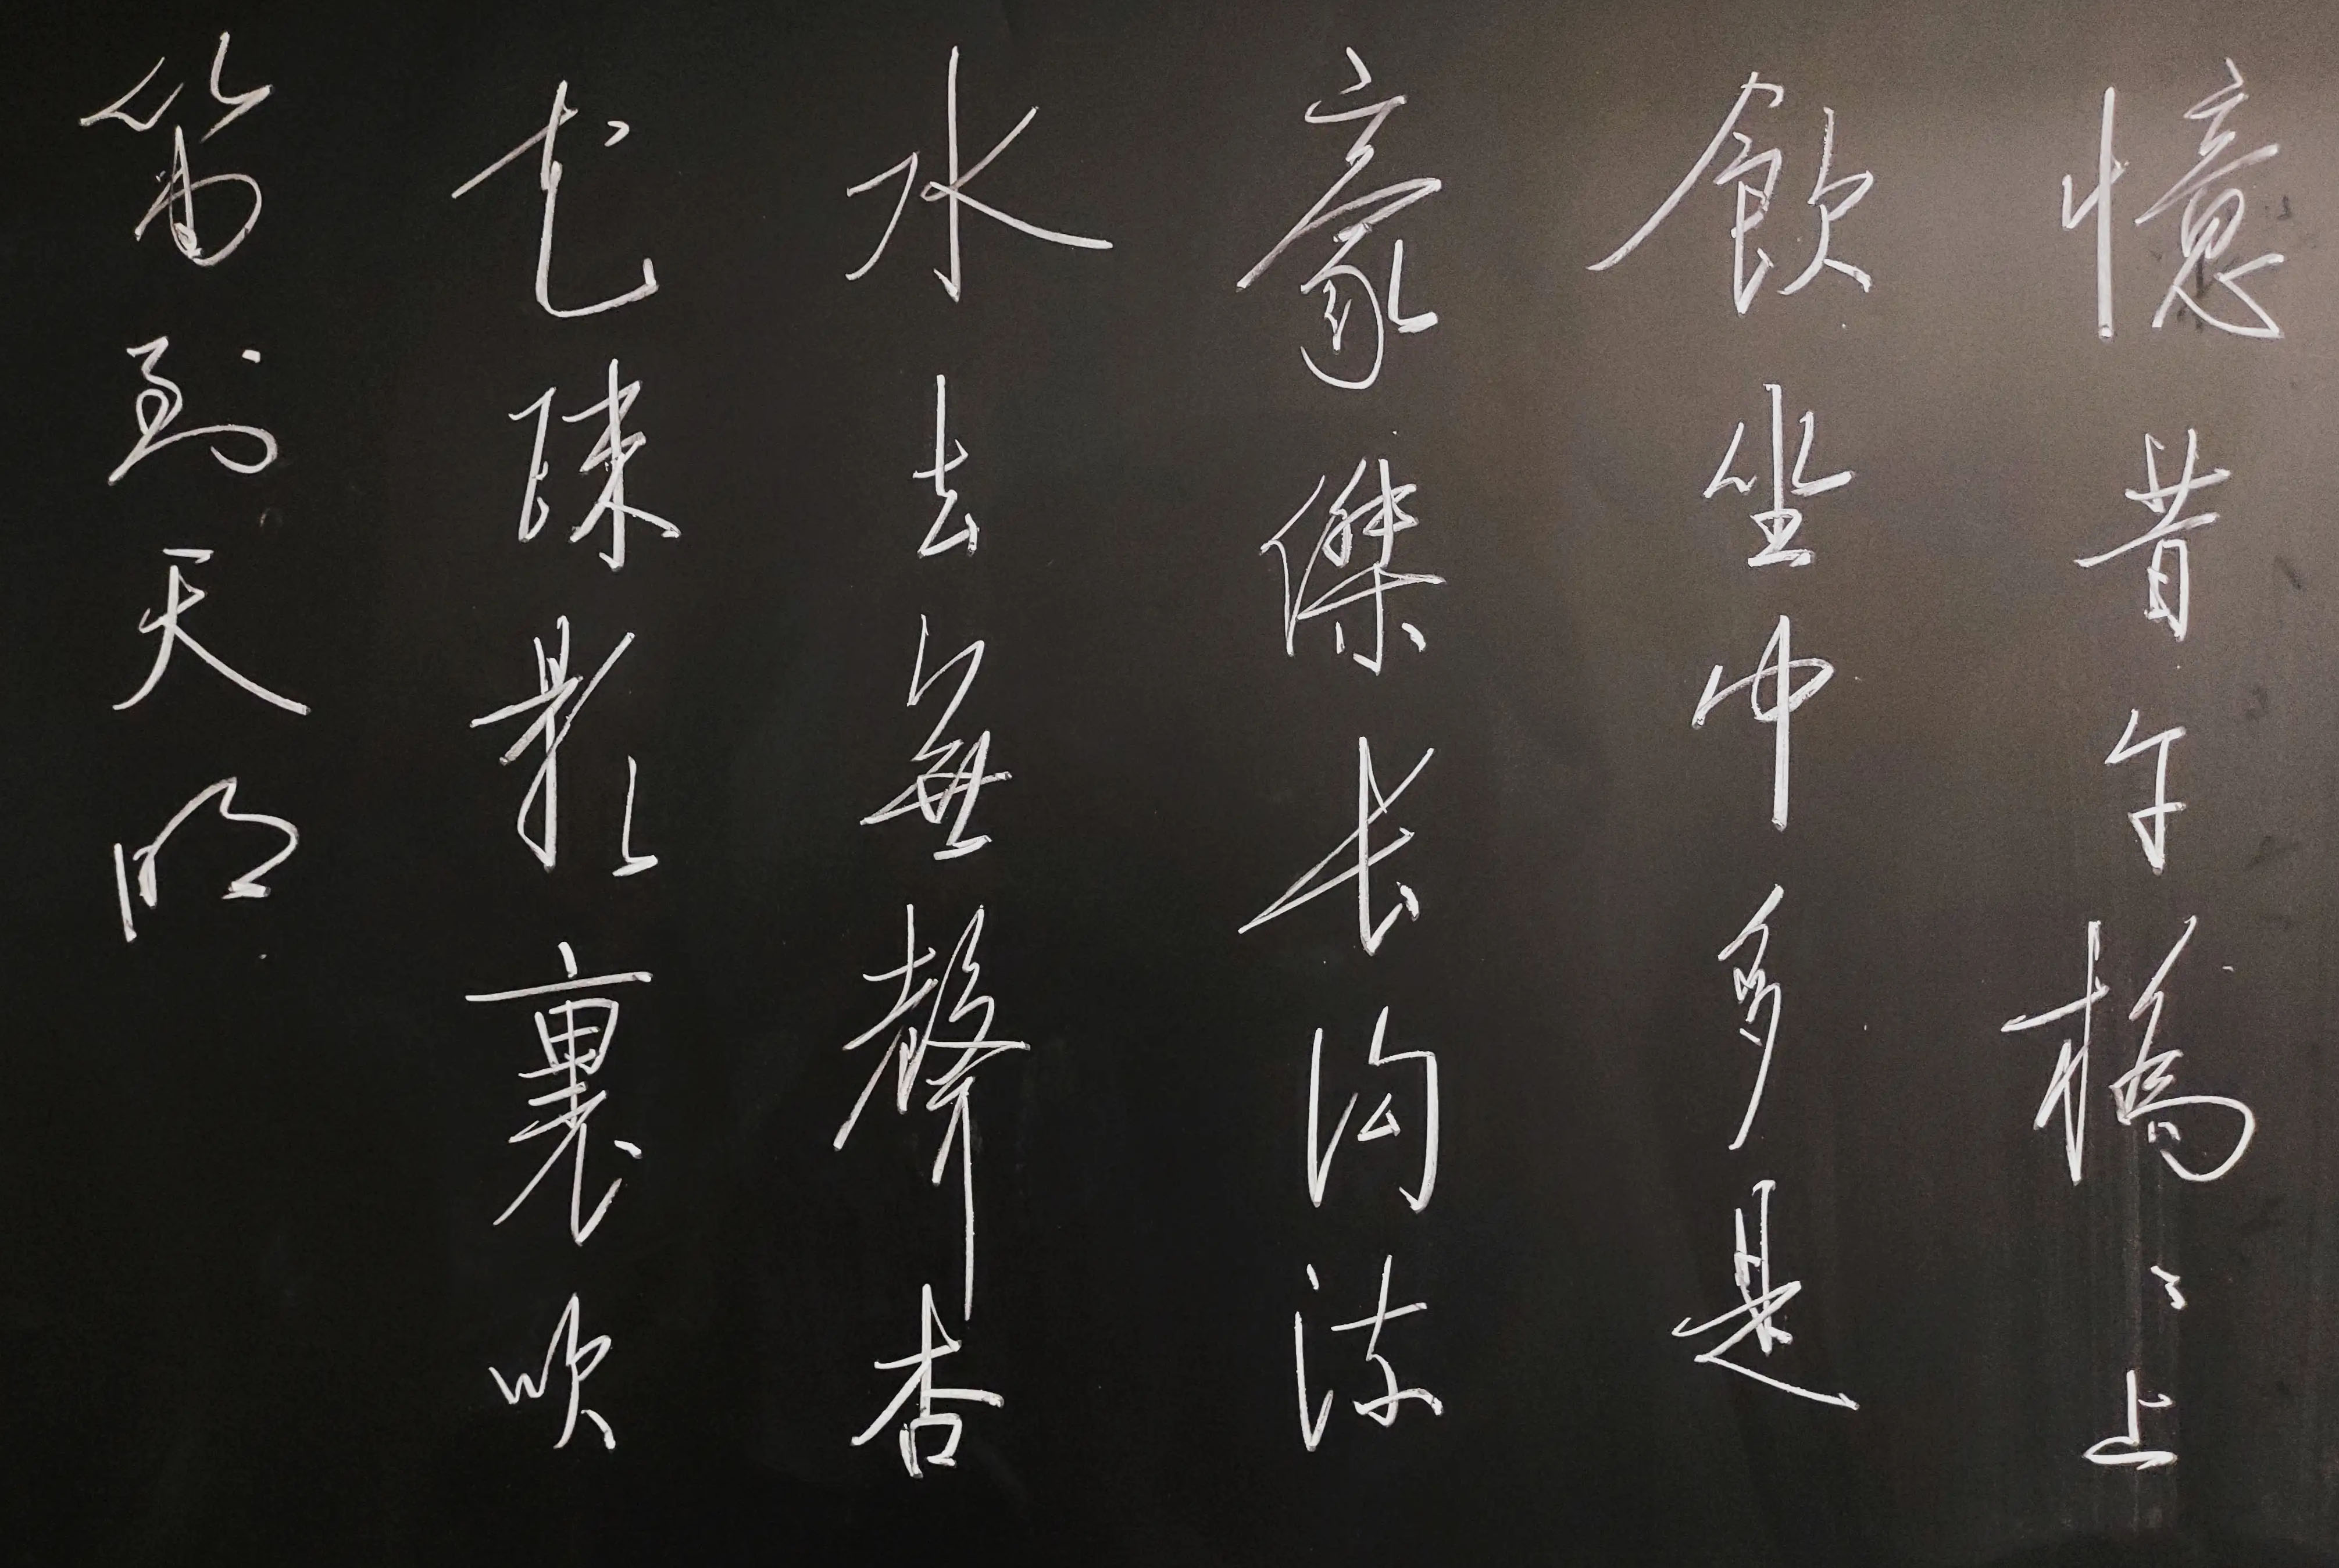 憶昔午橋〻上
飲坐中多是
豪傑长溝流
水去無聲杏
花疎影裏吹
笛到天明